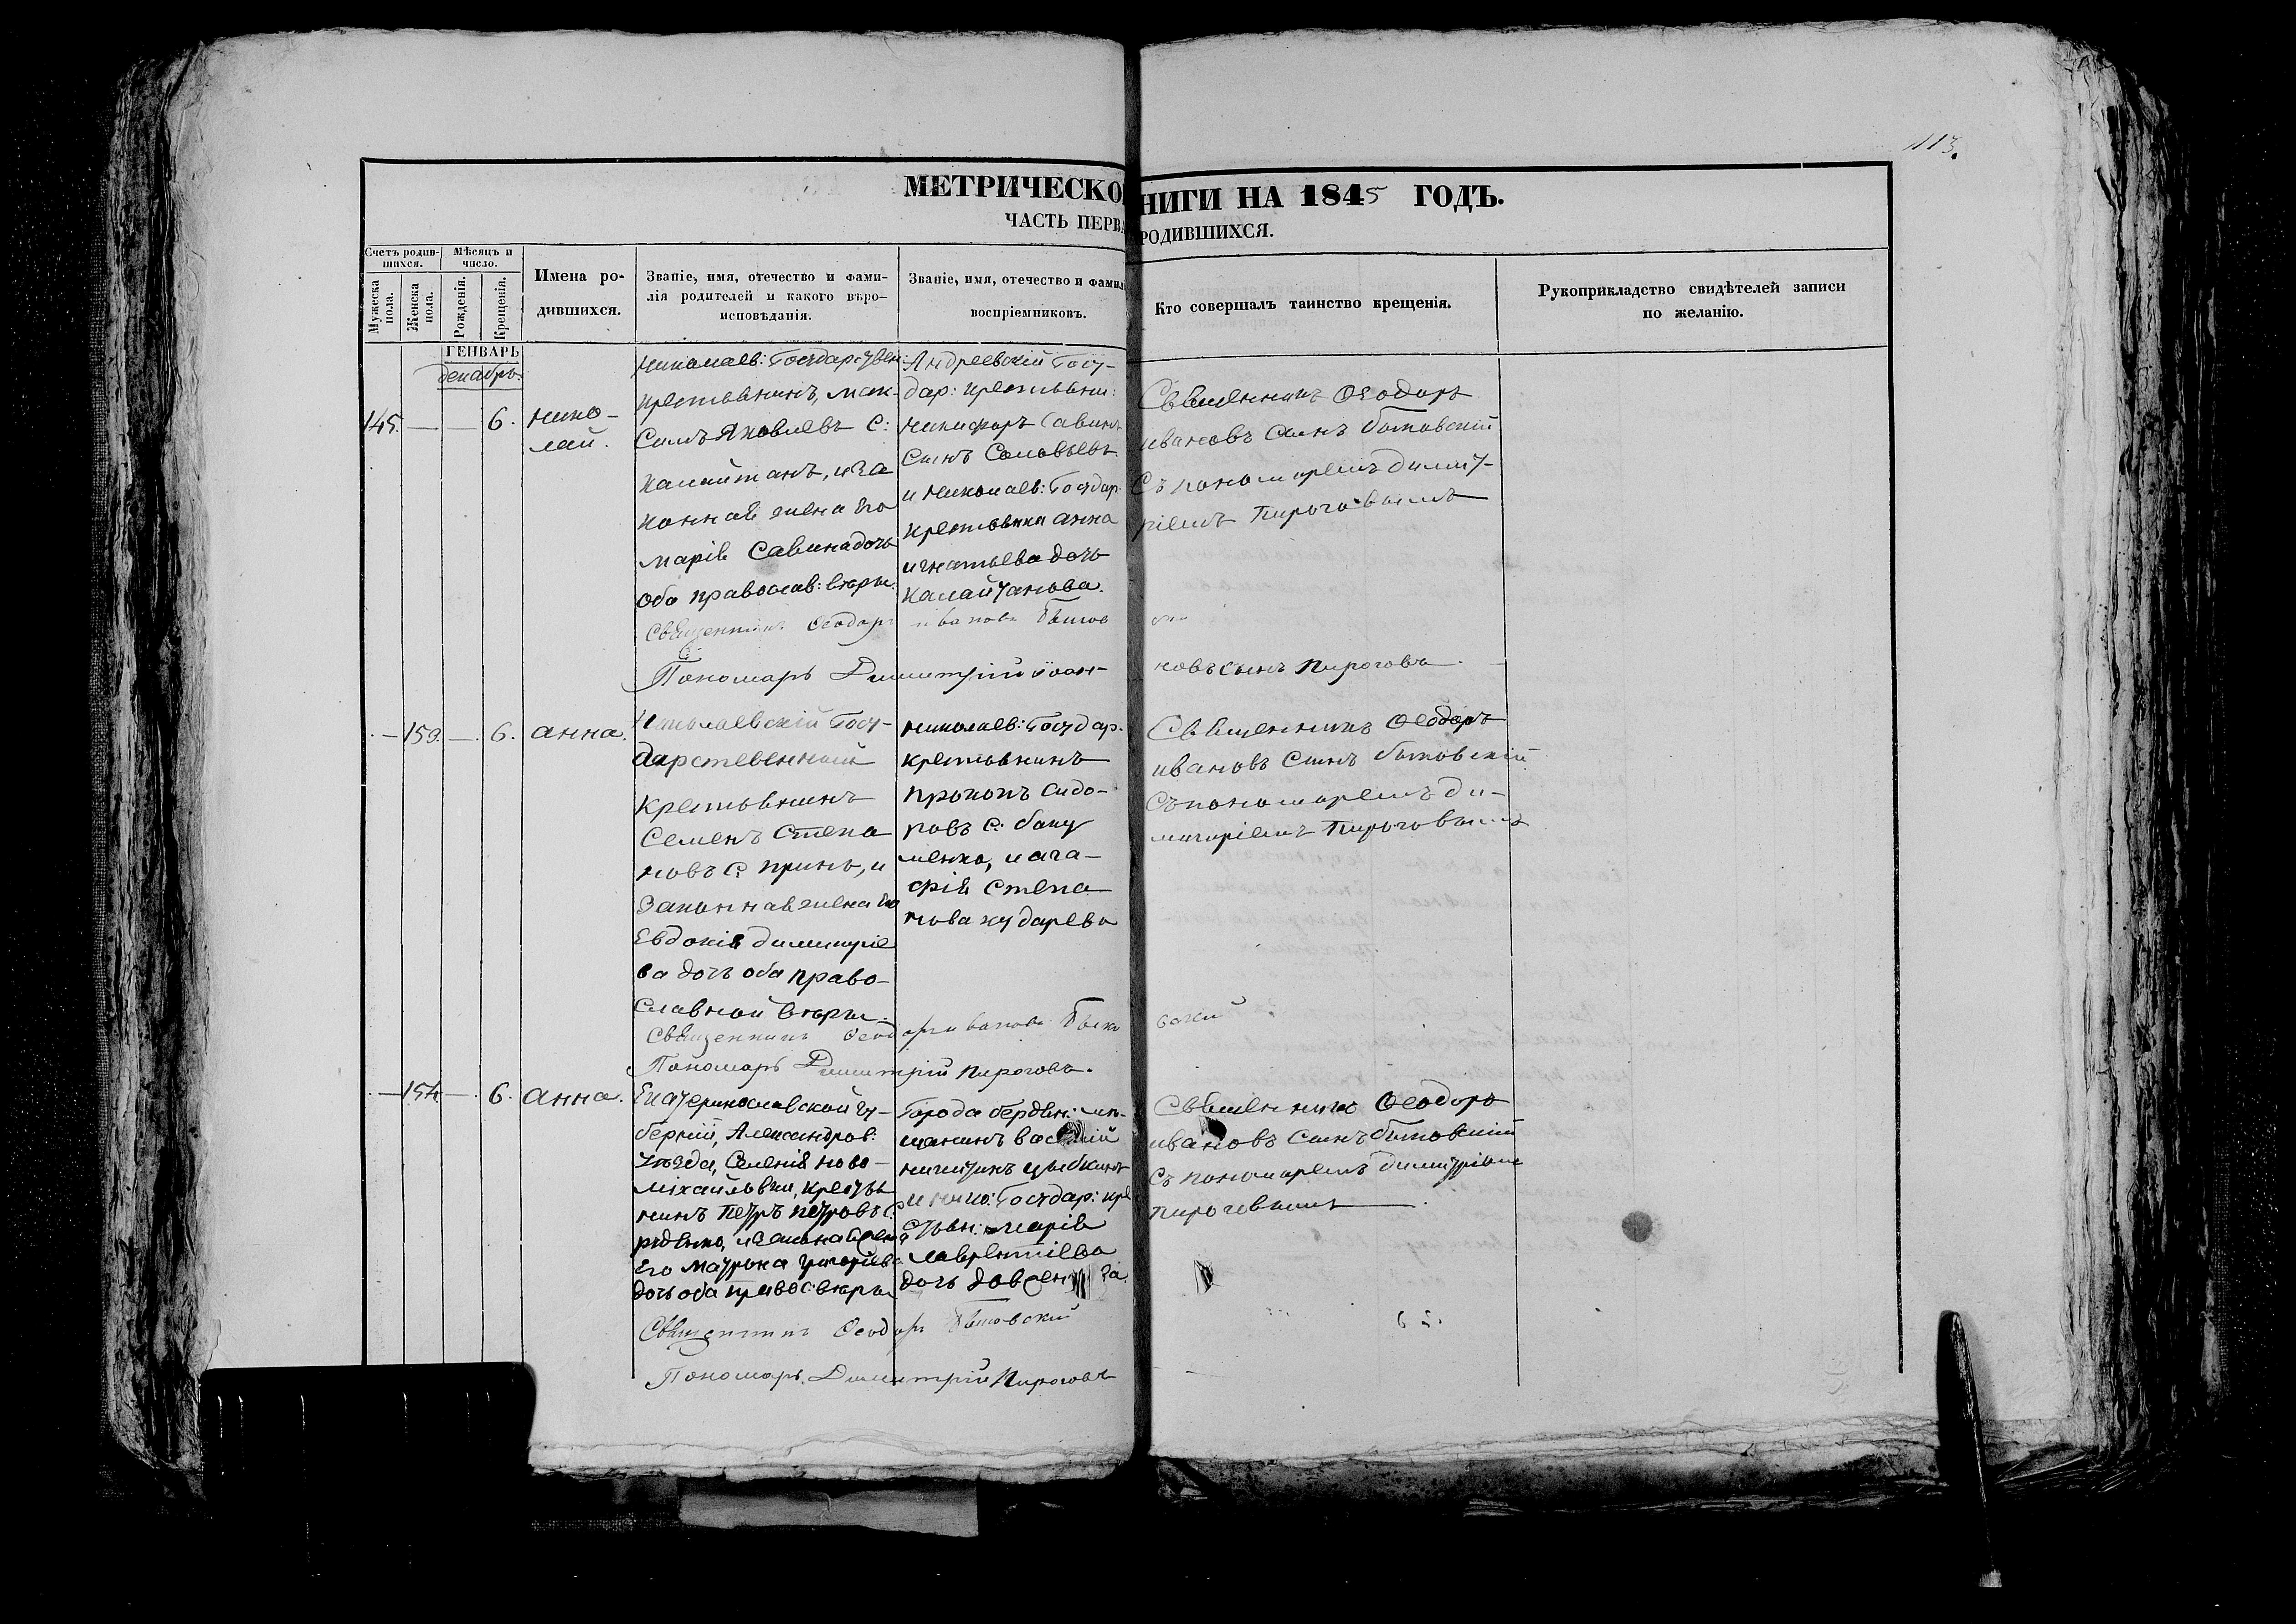 113.
МЕТРИЧЕСКО НИГИ НА 1845 ГОДЪ.
ЧАСТЬ ПЕРВА РОДИВШИХСЯ.
Счетъ родив-
шихся.
Мѣсяцъ и
число.
Мужеска
пола.
Женска
пола.
Рожденія.
Крещенія.
Имена ро-
дившихся.
Званіе, имя, отечество и фами-
лія родителей и какого вѣро-
исповѣданія.
Званіе, имя, отечество и фамил
воспріемниковъ.
Кто совершалъ таинство крещенія.
Рукоприкладство свидѣтелей записи
по желанію.
ГЕНВАРЬ
декабрь.
145. — — 6.
Нико-
лай.
Николаев: Государствен:
крестьянинъ, Мак-
симъ Яковлевъ С:
Калайтанъ, и за
конная жена его
Марія Савина дочь
оба православ: вѣры.
Андреевскій Госу-
дар: крестьяни:
Никифоръ Савинъ
сынъ Соловьевъ
и Николаев: Государ:
крестьянка Анна
Игнатьева дочь
Калайтанова.
Священникъ Ѳеодоръ
Ивановъ сынъ Бытовскій
съ пономаремъ Димит-
ріемъ Пироговымъ
Священникъ Ѳеодоръ Ивановъ Бытов
Пономарь Димитрій Іоан-
новъ сынъ Пироговъ.
— 153. — 6. Анна.
Николаевскій Госу-
дарственный
крестьянинъ
Семенъ Степа
новъ С: Принь, и
законная жена его
Евдокія Димитріе
ва дочь оба право-
славной вѣры.
Николаев: Государ.
крестьянинъ
Прокопъ Сидо-
ровъ С: Баку
менко, и Ага-
фія Степа
нова Хударева
Священникъ Ѳеодоръ
Ивановъ сынъ Бытовскій
съ пономаремъ Ди-
митріемъ Пироговымъ
Священникъ Ѳеодоръ Ивановъ Бытов скій
Пономарь Димитрій Пироговъ.
— 154. — 6. Анна.
Екатеринославской гу-
берніи, Александров:
уѣзда, Селенія Ново-
михайловки, крестья
нинъ Петръ Петровъ С:
его Матрона Григорьева
дочь оба правос: вѣры
Города Бердян: мѣ-
щанинъ Василій
и Нико: Государ: кре
стьян: Марія
Лаврентіева
дочь
Священникъ Ѳеодоръ
Ивановъ сынъ Бытовскій
съ пономаремъ Димитріемъ
Пироговымъ
Священникъ Ѳеодоръ Бытовскій
Пономарь Димитрій Пироговъ